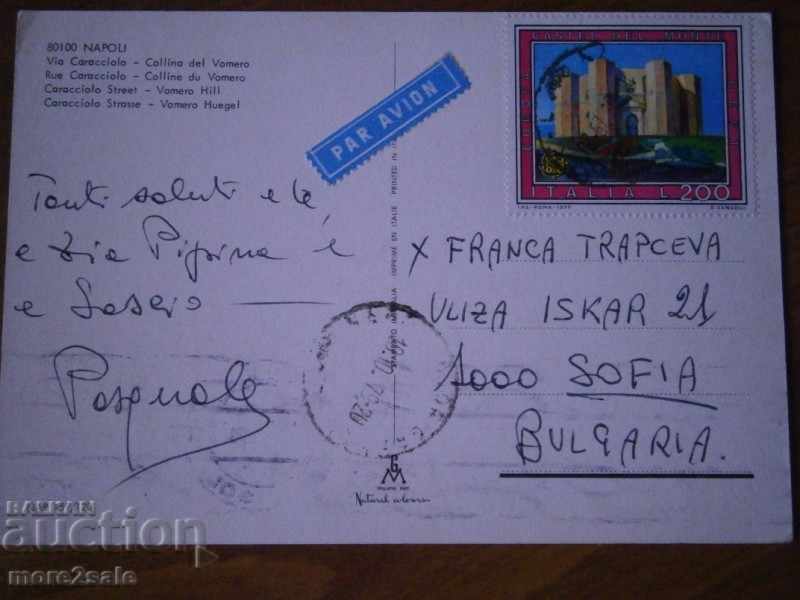 80100 NAPOLI
Via Caracciolo - Collina del Vomero
Rue Caracciolo - Colline du Vomero
Caracciolo Street - Vomero Hill
Caracciolo Strasse - Vomero Huegel
PAR AVION
CASTEL DEL MONTE
ITALIA L.200
I.P.S.-ROMA-1977
Tanti saluti e te,
e Zia Pippina e
e
Pasquale
X FRANCA TRAPCEVA
ULIZA ISKAR 21
1000 SOFIA
BULGARIA.
IMPRIMÉ EN ITALIE PRINTED IN
Natural colour
BALKAN
auction
more2sale